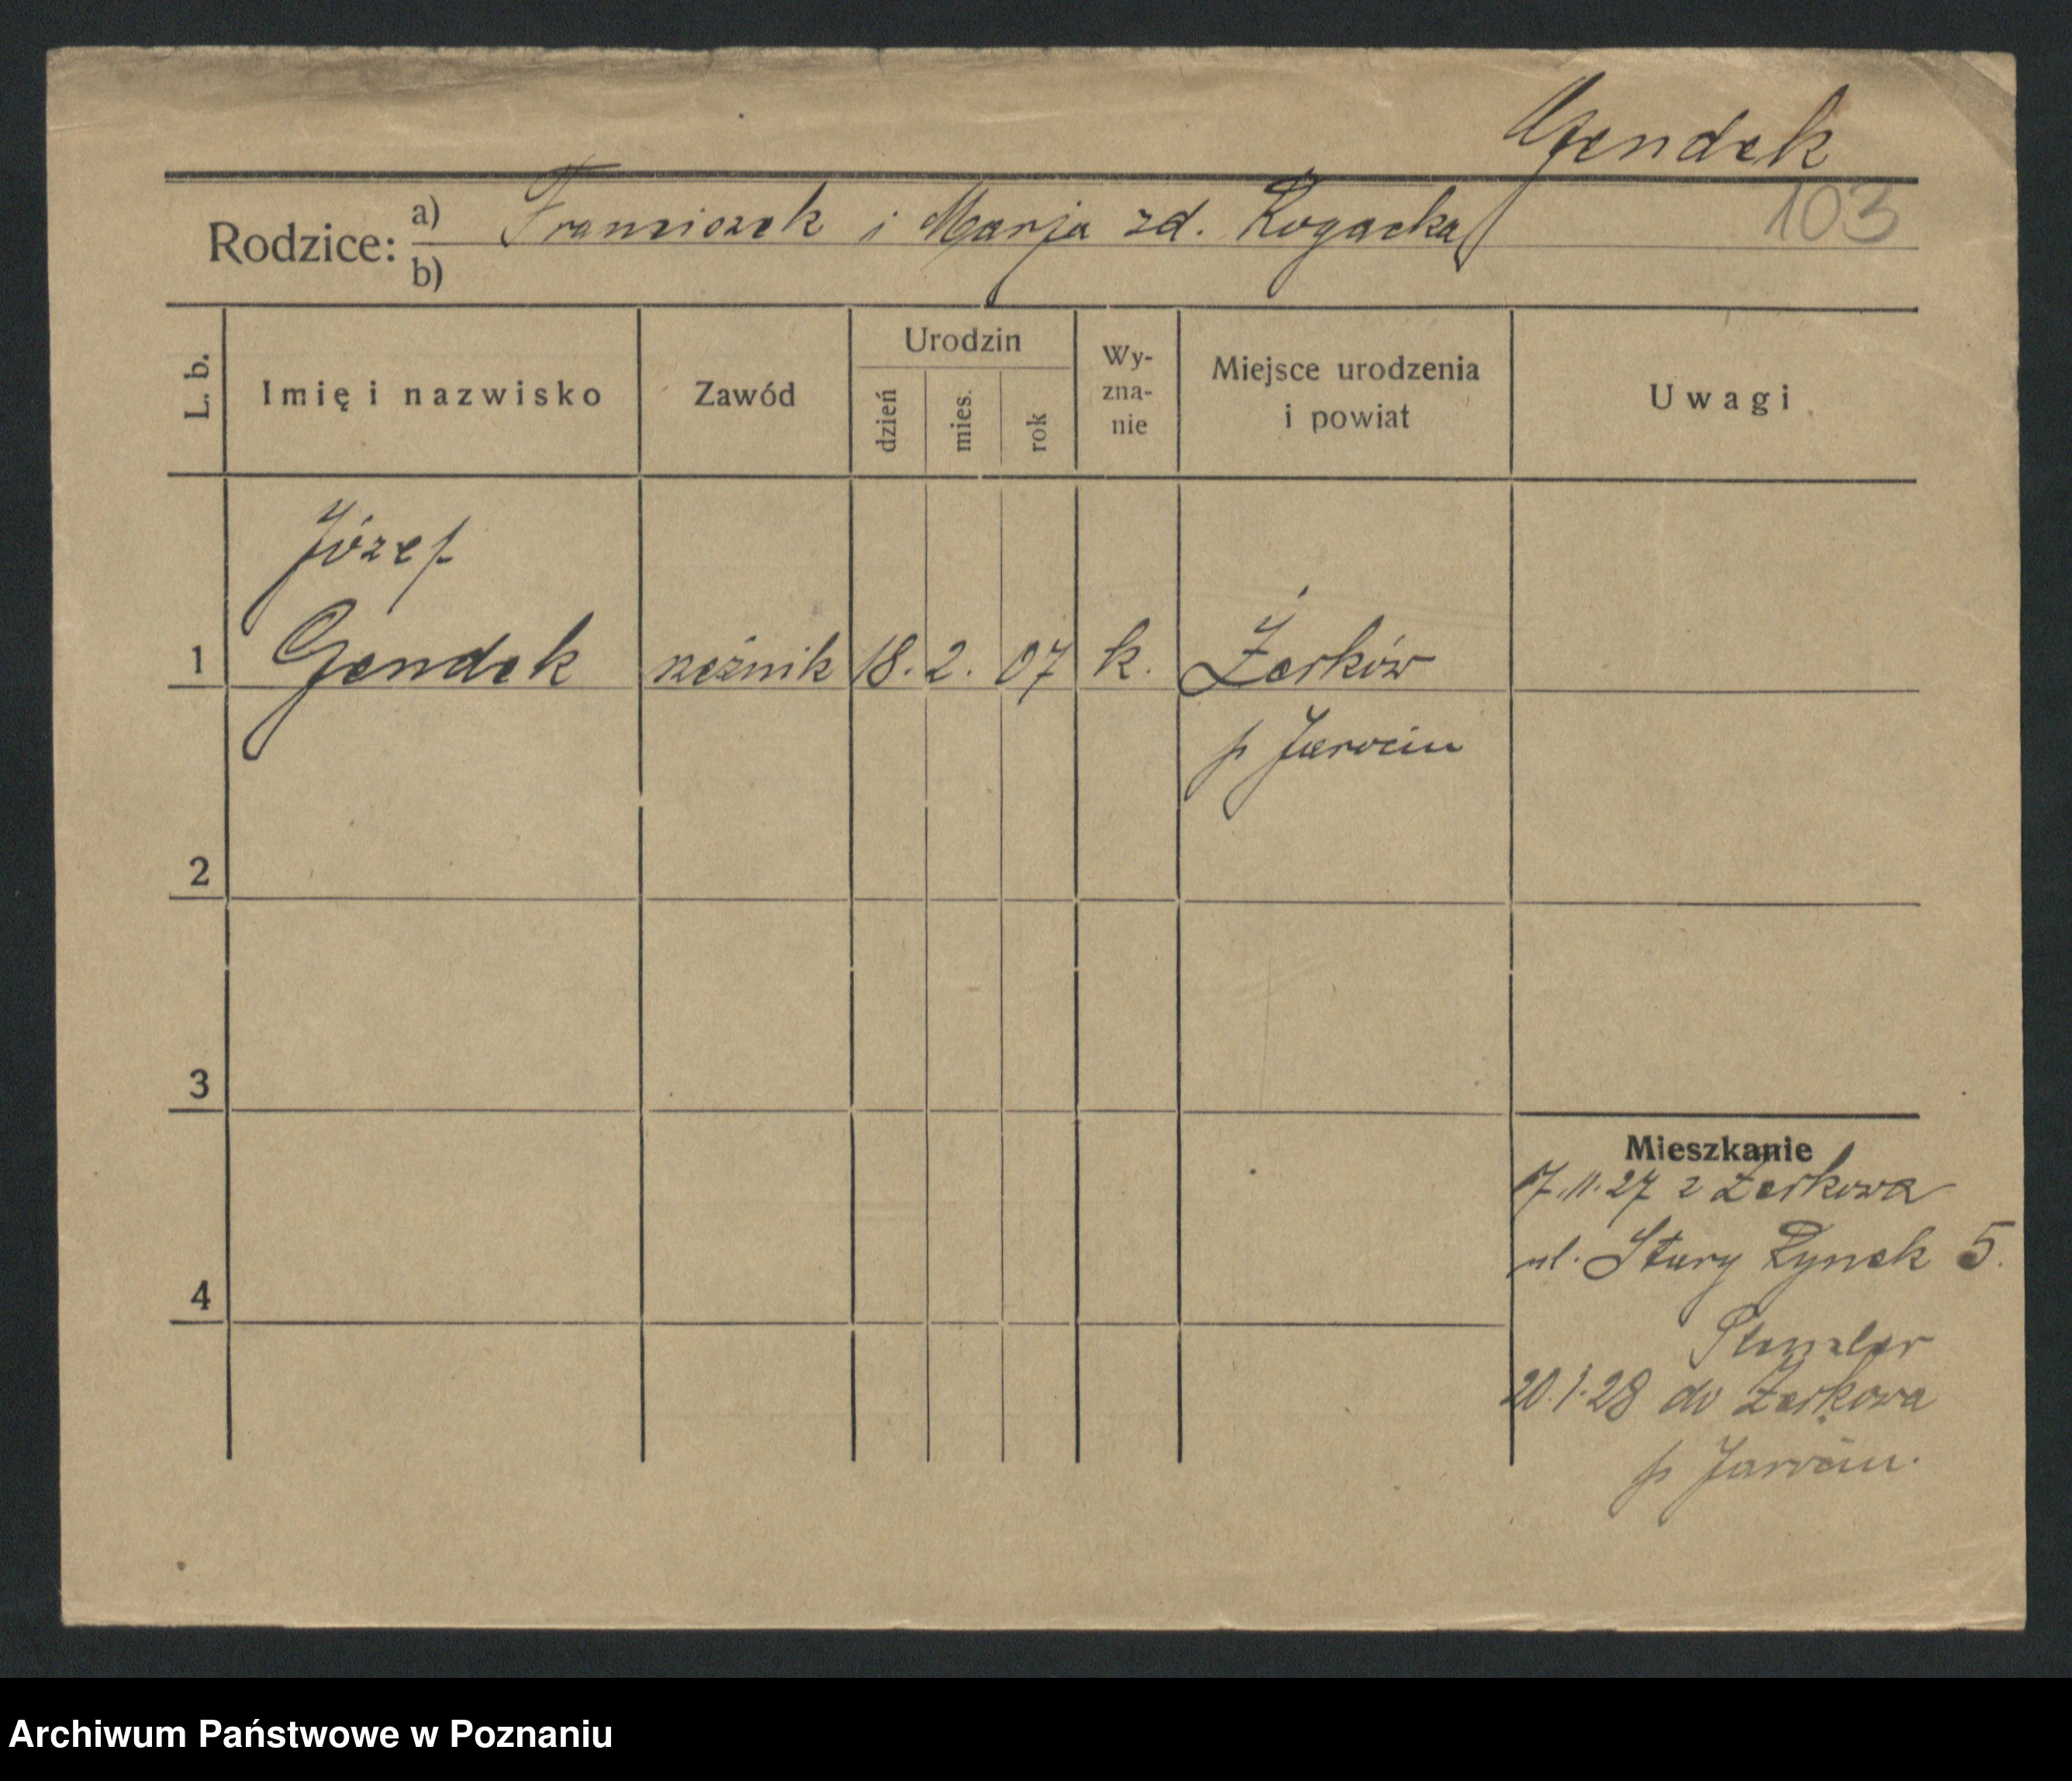 Gendek
103
Rodzice: a) Franciszek i Marja zd. Rogacka
b)
L. b. Imię i nazwisko Zawód Urodzin dzień mies. rok Wyznanie Miejsce urodzenia i powiat Uwagi
Józef
1 Gendek rzeźnik 18. 2. 07 k. Żerków
p Jarocin
2
3
Mieszkanie
17.11.27 z Żerkowa
ul. Stary Rynek 5.
4
20.1.28 do Żerkowa
p Jarocin.
Archiwum Państwowe w Poznaniu